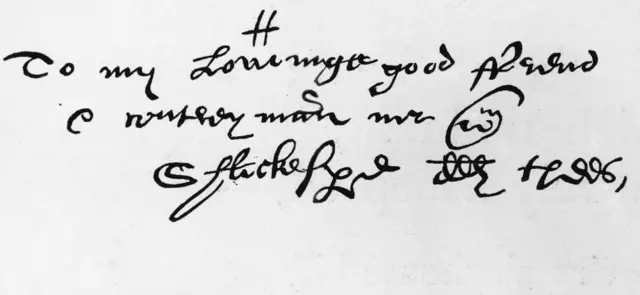 To my Loveinge good ffrend
& contreymann mr wm
Shackespere thees,